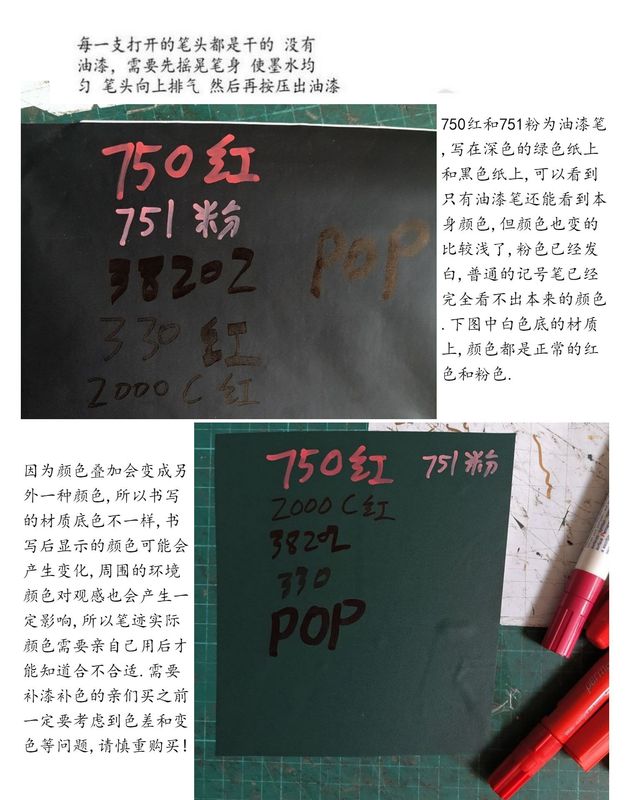 每一支打开的笔头都是干的 没有
油漆, 需要先摇晃笔身 使墨水均
匀 笔头向上排气 然后再按压出油漆
750红
751 粉
38202
330 红
2000 C 红
POP
750红和751粉为油漆笔
,写在深色的绿色纸上
和黑色纸上,可以看到
只有油漆笔还能看到本
身颜色,但颜色也变的
比较浅了,粉色已经发
白,普通的记号笔已经
完全看不出本来的颜色
.下图中白色底的材质
上,颜色都是正常的红
色和粉色.
因为颜色叠加会变成另
外一种颜色,所以书写
的材质底色不一样,书
写后显示的颜色可能会
产生变化,周围的环境
颜色对观感也会产生一
定影响,所以笔迹实际
颜色需要亲自己用后才
能知道合不合适.需要
补漆补色的亲们买之前
一定要考虑到色差和变
色等问题,请慎重购买!
750红 751粉
2000 C 红
38202
330
POP